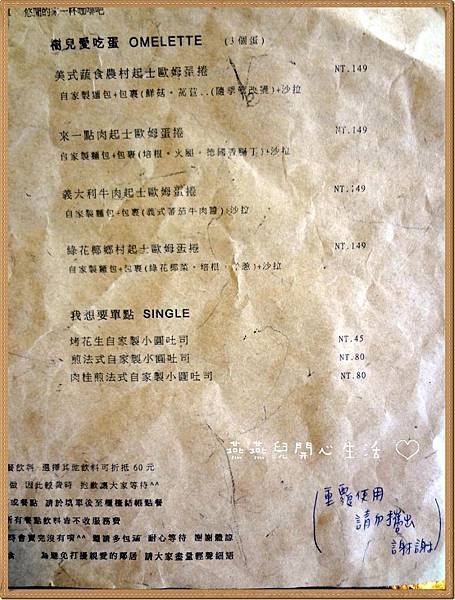 悠閒的第一杯咖啡吧
蔔兒愛吃蛋 OMELETTE (3個蛋)
美式蔬食農村起士歐姆蛋捲 NT.149
自家製麵包+包裹(鮮菇。萵苣..(隨季節改變)+沙拉
來一點肉起士歐姆蛋捲 NT.149
自家製麵包+包裹(培根。火腿。德國香腸丁)+沙拉
義大利牛肉起士歐姆蛋捲 NT.149
自家製麵包+包裹(義式蕃茄牛肉醬)+沙拉
綠花椰鄉村起士歐姆蛋捲 NT.149
自家製麵包+包裹(綠花椰菜。培根。洋蔥)+沙拉
我想要單點 SINGLE
烤花生自家製小圓吐司 NT.45
煎法式自家製小圓吐司 NT.80
肉桂煎法式自家製小圓吐司 NT.80
燕燕兒開心生活 ♡
餐飲料 選擇其他飲料可折抵 60元
做 因此較費時 抱歉讓大家等待^^
或餐點 請於填單後至櫃檯結帳點餐
所有餐點飲料皆不收服務費
時會賣完沒有唷^^ 還請多包涵 耐心等待 謝謝體諒
食 為避免打擾親愛的鄰居 請大家盡量輕聲細語
(重覆使用
請勿攜出
謝謝)